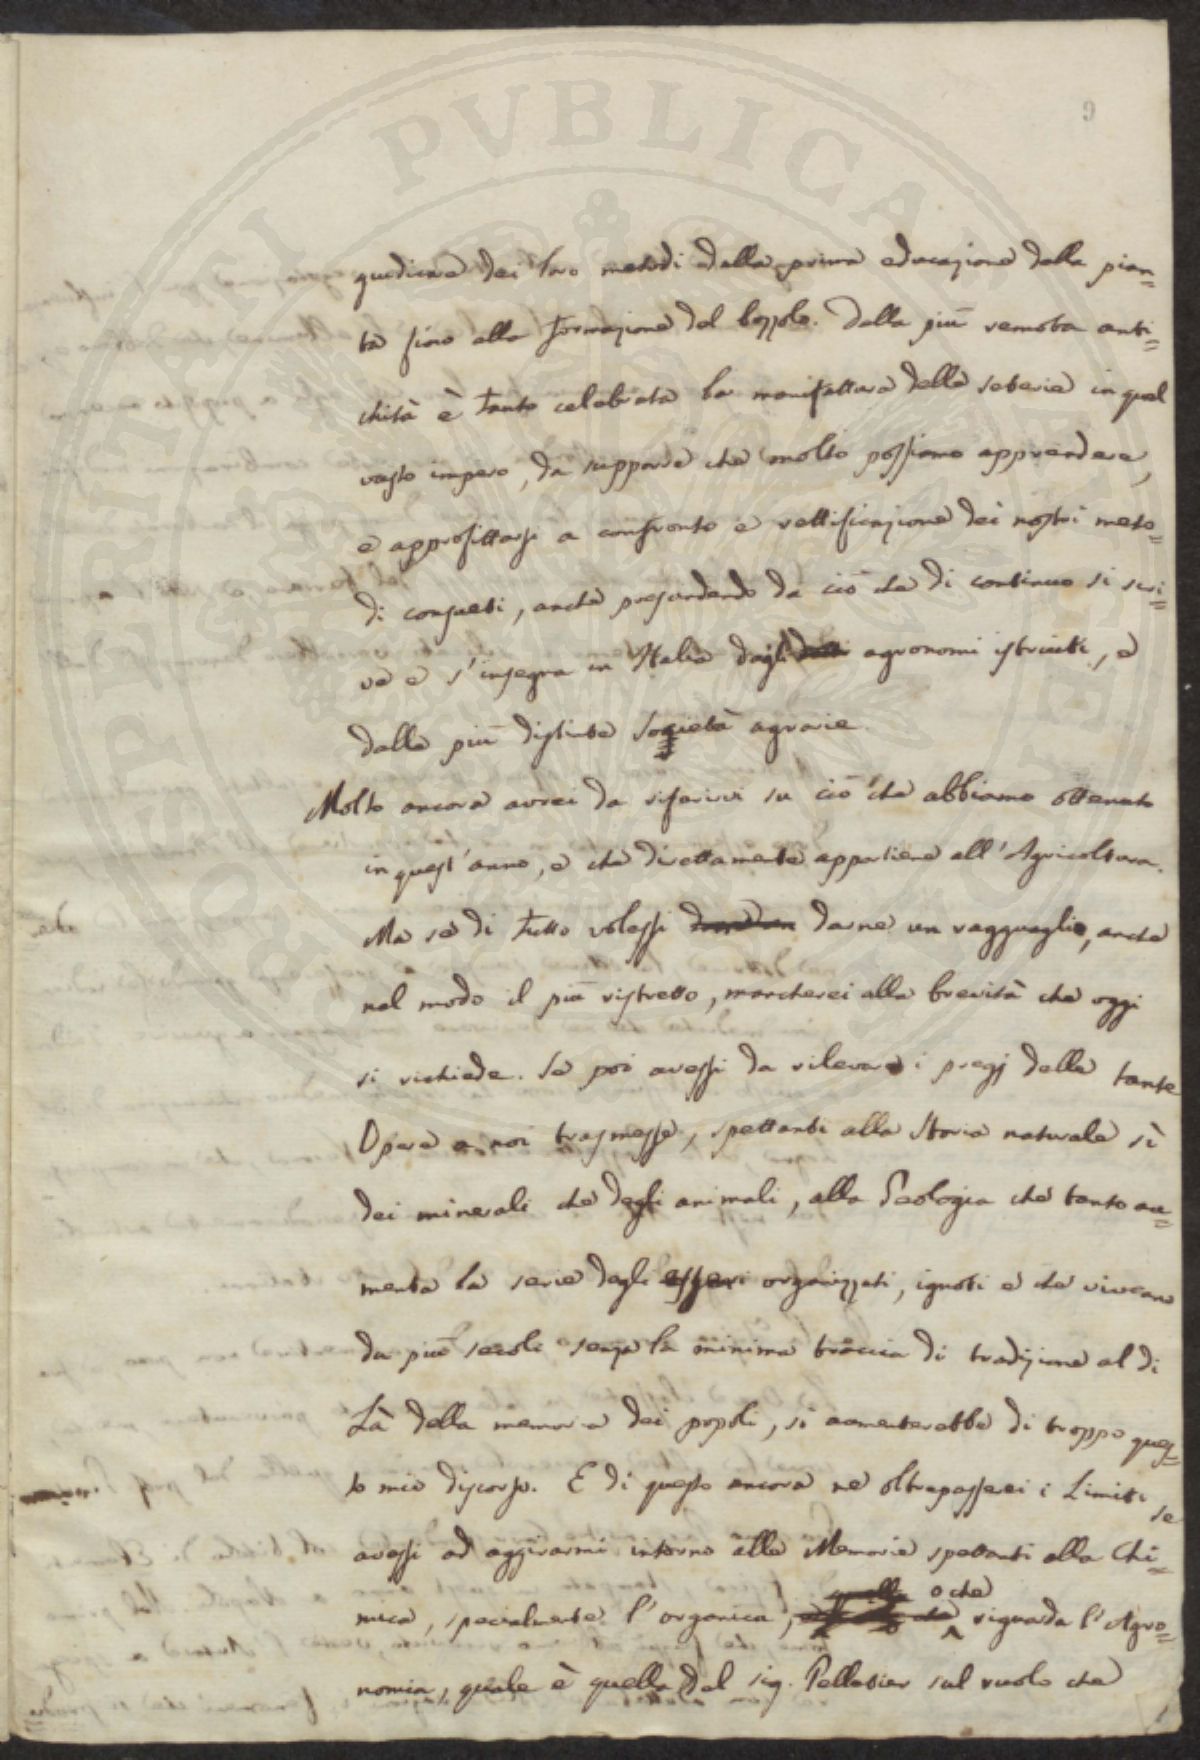 9
giudicare dei loro metodi dalla prima educazione della pian=
ta fino alla formazione del bozzolo. Dalla più remota anti=
chità è tanto celebrata la manifattura delle seterie in quel
vasto impero, da supporre che molto possiamo apprendere,
e approfittarsi a confronto e rettificazione dei nostri meto=
di consueti, anche prescindendo da ciò che di continuo si scri=
ve e s'insegna in Italia dagli agronomi istruiti, e
dalle più distinte società agrarie.
Molto ancora avrei da riferirvi su ciò che abbiamo ottenuto
in quest'anno, e che direttamente appartiene all'Agricoltura.
Ma se di tutto volessi darne un ragguaglio, anche
nel modo il più ristretto, mancherei alla brevità che oggi
si richiede. Se poi avessi da rilevare i pregj delle tante
Opere a noi trasmesse, spettanti alla Storia naturale sì
dei minerali che degli animali, alla Geologia che tanto au=
menta la serie degli esseri organizzati, ignoti e che viveano
da più secoli senza la minima traccia di tradizione al di
Là della memoria dei popoli, si aumenterebbe di troppo ques=
to mio discorso. E di questo ancora ne oltrepasserei i Limiti se
avessi ad aggirarmi intorno alle Memorie spettanti alla Chi=
mica, specialmente l'organica, o che riguarda l'Agro=
nomia, quale è quella del sig. Pelletier sul ruolo che